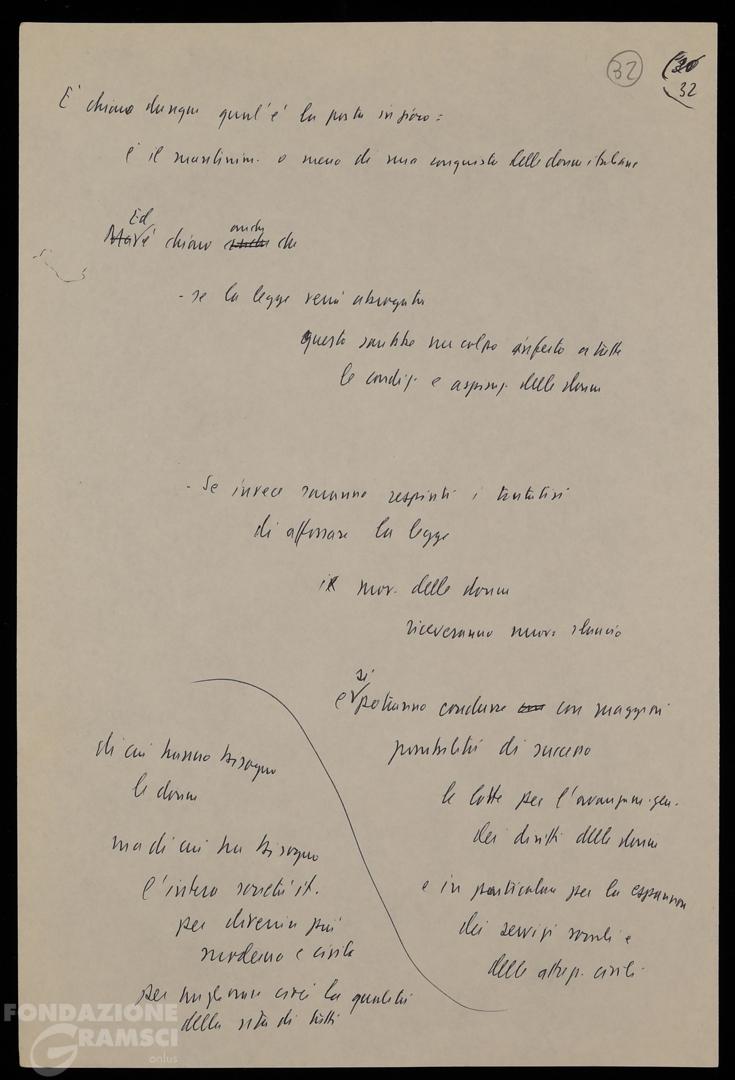 32
30
32
E' chiaro dunque qual'è la posta in gioco:
è il mantenim. o meno di una conquista delle donne italiane
Ed
Ma è chiaro anche che
anche
- se la legge verrà abrogata
questo sarebbe un colpo inferto a tutte
le condiz. e aspiraz. delle donne
- Se invece saranno respinti i tentativi
di affossare la legge
il mov. delle donne
riceveranno nuovo slancio
si
e potranno condurre con con maggiori
possibilità di successo
le lotte per l'avanzam. gen.
dei diritti delle donne
e in particolare per la espansione
dei servizi sociali e
delle attrezz. civili
di cui hanno bisogno
le donne
ma di cui ha bisogno
l'intera società it.
per divenire più
moderna e civile
per migliorare cioè la qualità
della vita di tutti
FONDAZIONE
GRAMSCI
onlus